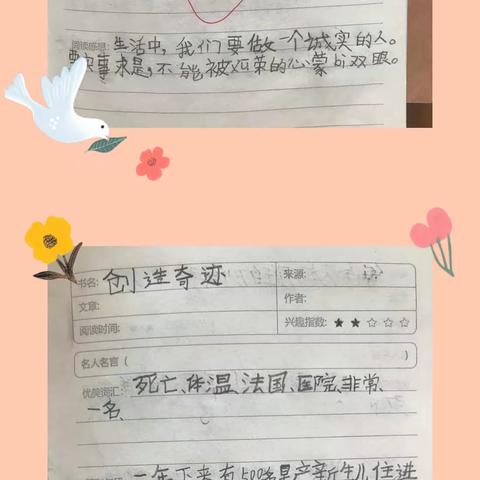 阅读感想：生活中，我们要做一个诚实的人。
要实事求是，不能被虚荣的心蒙bi双眼。
书名：创造奇迹
来源：
文章：
作者：
阅读时间：
兴趣指数：★★☆☆☆
名人名言（ ）
优美词汇：死亡、体温、法国、医院、非常、
一名、
一年下来有500名早产新生儿住进